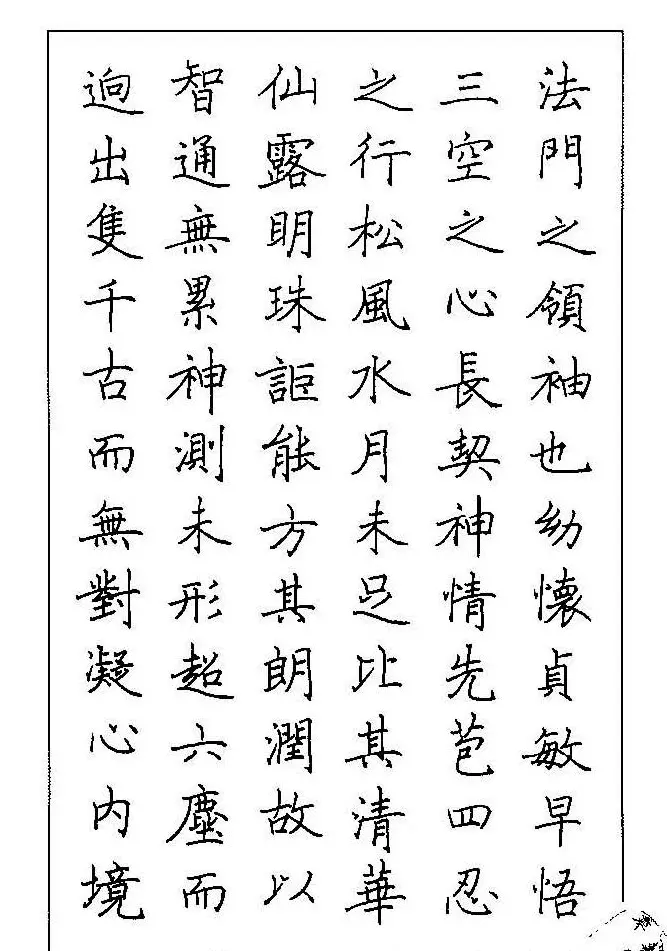 法門之領袖也幼懷貞敏早悟
三空之心長契神情先苞四忍
之行松風水月未足比其清華
仙露明珠詎能方其朗潤故以
智通無累神測未形超六塵而
逈出隻千古而無對凝心內境